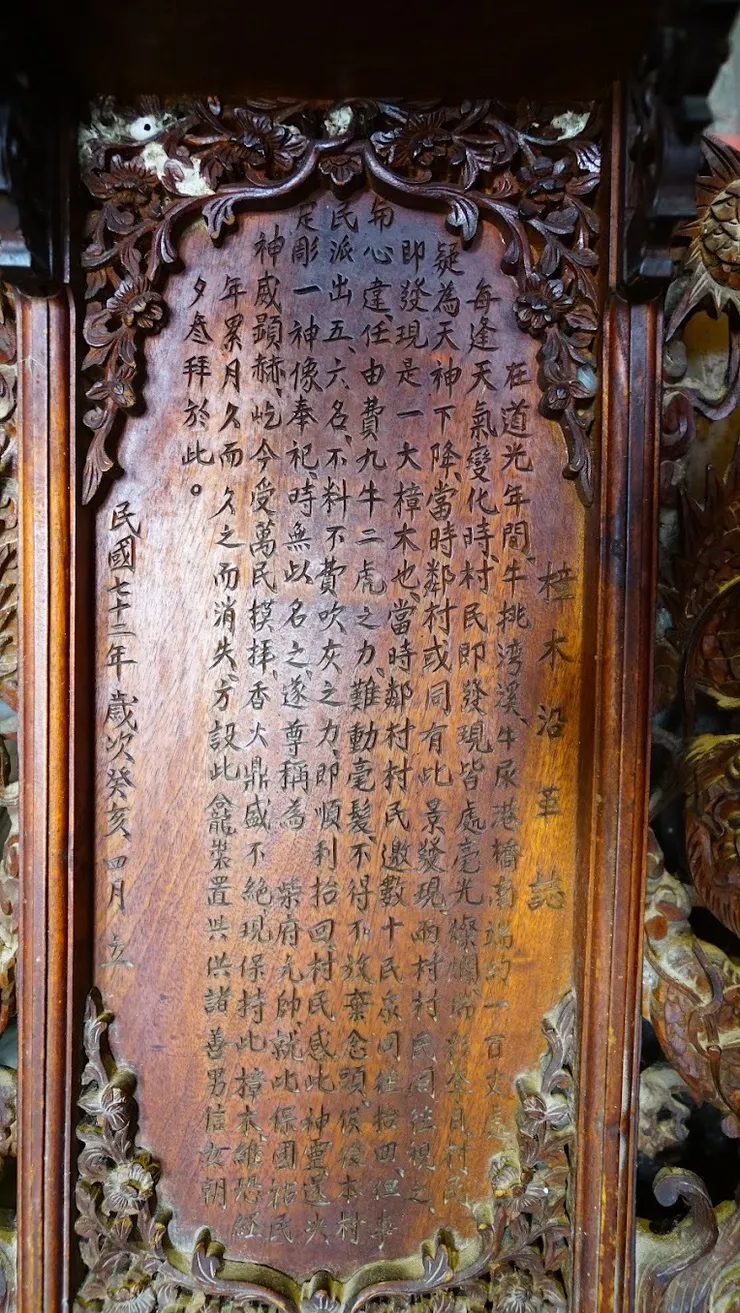 樟木沿革誌
在道光年間、牛挑湾溪、牛尿港橋南端約一百丈處
每逢天氣變化時、村民即發現皆處毫光燦爛瑞彩奪目村民
疑為天神下降、當時鄰村或同有此景發現、兩村村民同往視之、
即發現是一大樟木也、當時鄰村村民邀數十民眾同往抬回、但事
與心違、任由費九牛二虎之力、難動毫髮、不得不放棄念頭、俟後本村
民派出五、六名、不料不費吹灰之力、即順利抬回、村民感此神靈遂央
足彫一神像奉祀、時無以名之、遂尊稱為 柴府元帥、就此保國祐民
神威顯赫、屹今受萬民摸拜、香火鼎盛不絕、現保持此樟木、維恐經
年累月久而久之而消失、方設此龕裝置共供諸善男信女朝
夕叅拜於此。
民國七十二年歲次癸亥、四月 立